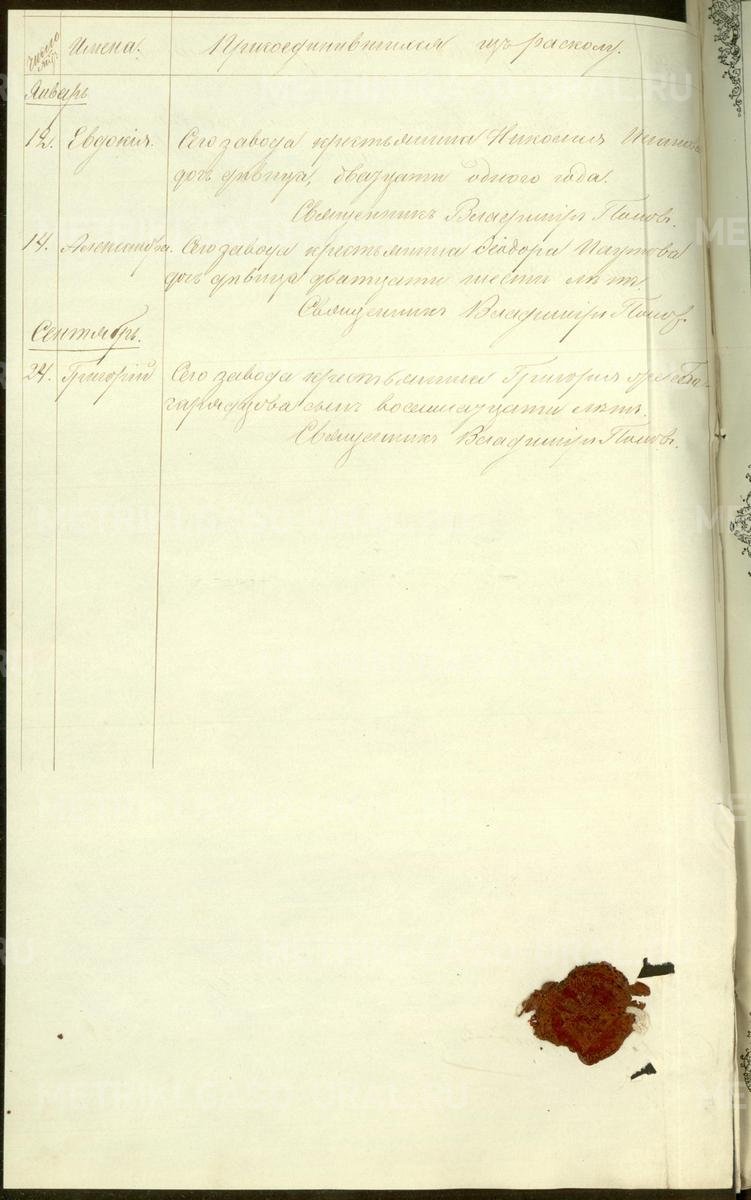 Число Имена. Присоединившихся изъ расколу.
Январь
12. Евдокія. Сего завода крестьянина Николая
дочь дѣвица, двадцати одного года.
Священникъ Владиміръ Поповъ.
14. Александра. Сего завода крестьянина Ѳеодора Паутова
дочь дѣвица двадцати шести лѣтъ.
Священникъ Владиміръ Поповъ.
Сентябрь.
24. Григорій Сего завода крестьянина Григорія
сынъ восемнадцати лѣтъ.
Священникъ Владиміръ Поповъ.
METRIKI.GASO-URAL.RU